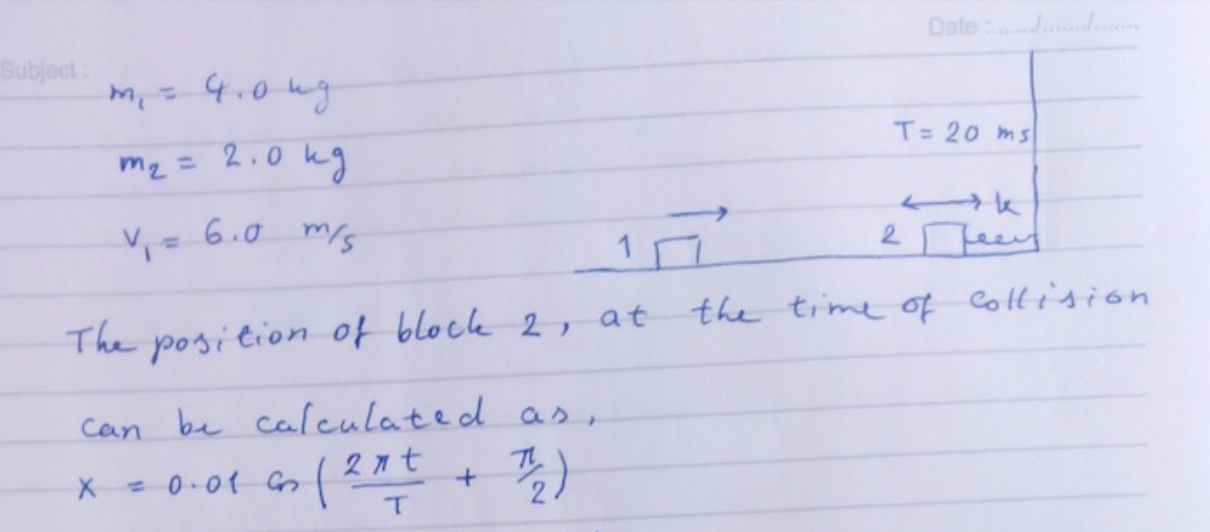 Date :......./......./.......
Subject :
m₁ = 4.0 kg
T = 20 ms
m₂ = 2.0 kg
k
v₁ = 6.0 m/s
1
2
The position of block 2, at the time of collision
can be calculated as,
x = 0.01 cos (2πt/T + π/2)